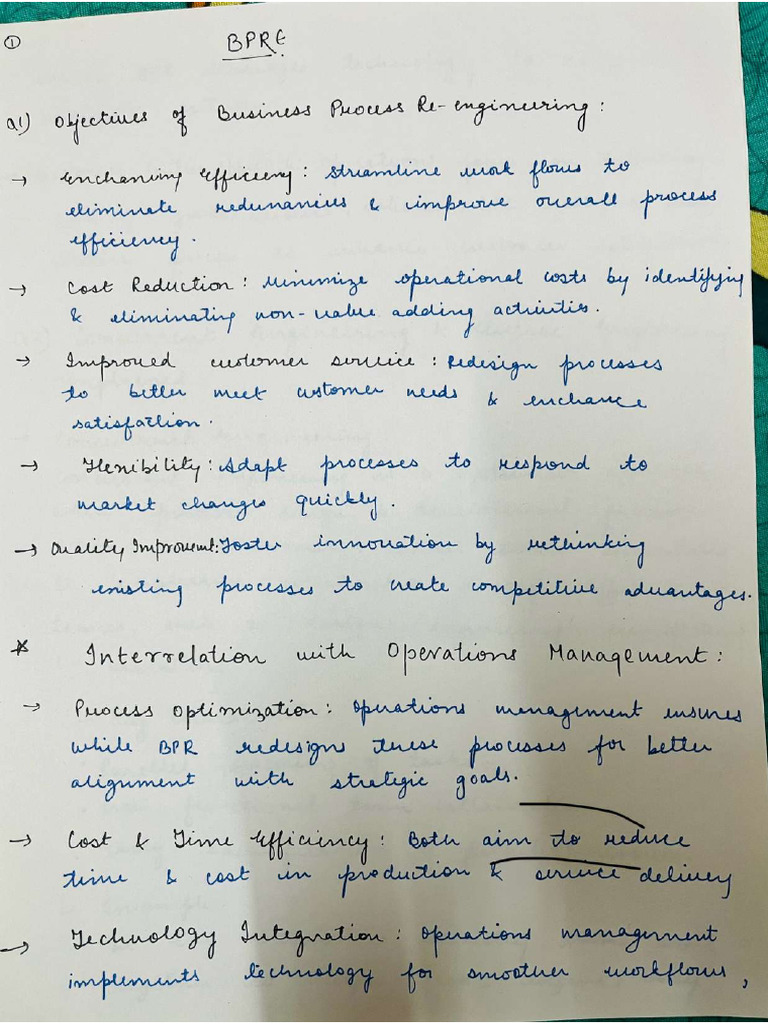 ①
BPRE
Q1) Objectives of Business Process Re-engineering :
→ Enchancing Efficiency : Streamline work flows to
eliminate redunancies & improve overall process
efficiency.
→ Cost Reduction : Minimize operational costs by identifying
& eliminating non-value adding activities.
→ Improved customer service : Redesign processes
to better meet customer needs & enchance
satisfaction.
→ Flexibility : Adapt processes to respond to
market changes quickly.
→ Quality Improvement : Foster innovation by rethinking
existing processes to create competitive advantages.
* Interrelation with Operations Management :
→ Process Optimization : Operations management ensures
while BPR redesigns these processes for better
alignment with strategic goals.
→ Cost & Time Efficiency : Both aim to reduce
time & cost in production & service delivery
→ Technology Integration : Operations management
implements technology for smoother workflows,